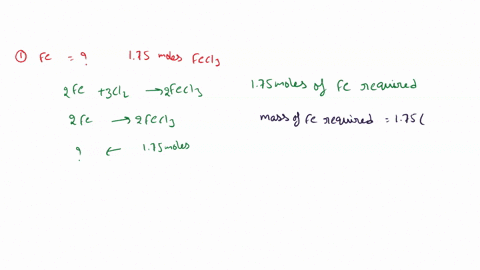 ① Fe = ? 1.75 moles FeCl3
2Fe + 3Cl2 → 2FeCl3 1.75 moles of Fe required
2Fe → 2FeCl3 mass of Fe required = 1.75 (
? ← 1.75 moles